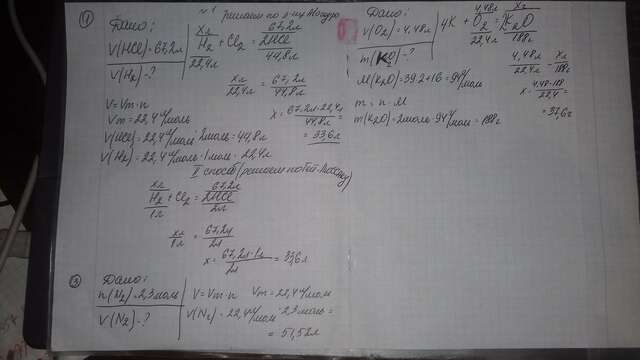 №1
① Дано:
V(HCl) = 67,2л
V(H₂) - ?
Решаем по з-ну Авогадро
xл 67,2л
H₂ + Cl₂ = 2HCl
22,4л 44,8л
xл / 22,4л = 67,2л / 44,8л
x = 67,2л · 22,4л / 44,8л = 33,6л
V = Vm · n
Vm = 22,4 л/моль
V(HCl) = 22,4 л/моль · 2моль = 44,8л
V(H₂) = 22,4 л/моль · 1моль = 22,4л
II способ (решаем по Гей-Люссаку)
xл 67,2л
H₂ + Cl₂ = 2HCl
1л 2л
xл / 1л = 67,2л / 2л
x = 67,2л · 1л / 2л = 33,6л
③ Дано:
n(N₂) = 2,3моль
V(N₂) - ?
V = Vm · n Vm = 22,4 л/моль
V(N₂) = 22,4 л/моль · 2,3моль =
= 51,52л
Дано:
V(O₂) = 4,48л
m(K₂O) - ?
4,48л xг
4K + O₂ = 2K₂O
22,4л 188г
M(K₂O) = 39·2+16 = 94 г/моль
m = n · M
m(K₂O) = 2моль · 94 г/моль = 188г
4,48л / 22,4л = xг / 188г
x = 4,48 · 188 / 22,4 =
= 37,6г